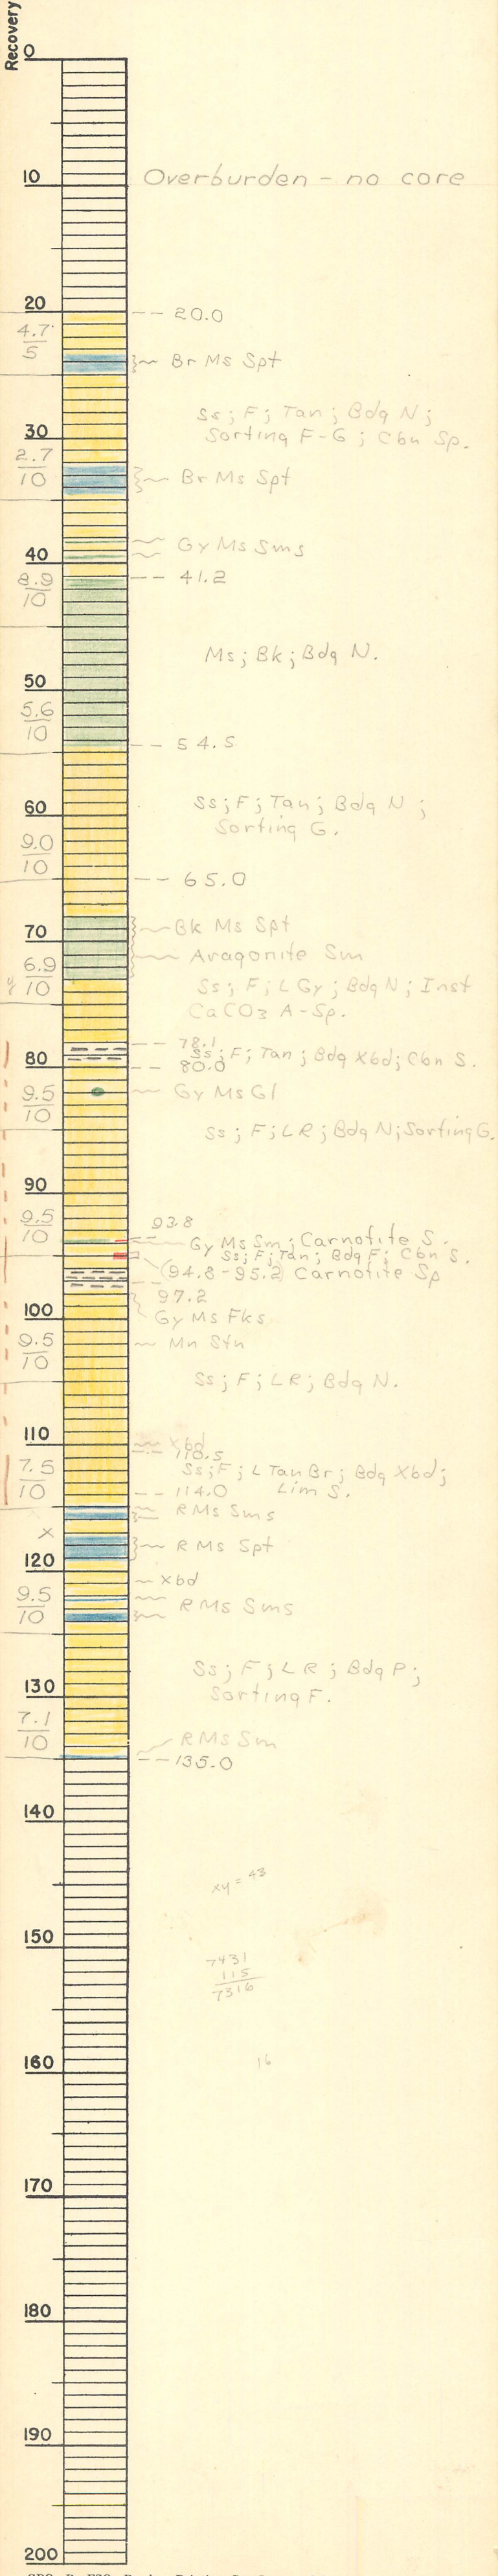 Recovery
0
10 Overburden - no core
20 -- 20.0
4.7
5
Br Ms Spt
Ss; F; Tan; Bdg N;
30 Sorting F-G; Cbn Sp.
2.7
10
Br Ms Spt
Gy Ms Sms
40
8.9
10
-- 41.2
Ms; Bk; Bdg N.
50
5.6
10
-- 54.5
60 Ss; F; Tan; Bdg N;
Sorting G.
9.0
10
-- 65.0
70 Bk Ms Spt
Aragonite Sm
6.9
10
Ss; F; L Gy; Bdg N; Inst
CaCO3 A-Sp.
-- 78.1
Ss; F; Tan; Bdg Xbd; Cbn S.
80 -- 80.0
Gy Ms Gl
9.5
10
Ss; F; LR; Bdg N; Sorting G.
90
9.5
10
93.8
Gy Ms Sm; Carnotite S.
Ss; F; Tan; Bdg F; Cbn S.
(94.8-95.2) Carnotite Sp
97.2
100 Gy Ms Fks
9.5
10
Mn Stn
Ss; F; LR; Bdg N.
110 Xbd
110.5
7.5
10
Ss; F; L Tan Br; Bdg Xbd;
-- 114.0 Lim S.
R Ms Sms
X
R Ms Spt
120
Xbd
9.5
10
R Ms Sms
Ss; F; LR; Bdg P;
130 Sorting F.
7.1
10
R Ms Sm
-- 135.0
140
xy = 43
150
7431
115
7316
160 16
170
180
190
200